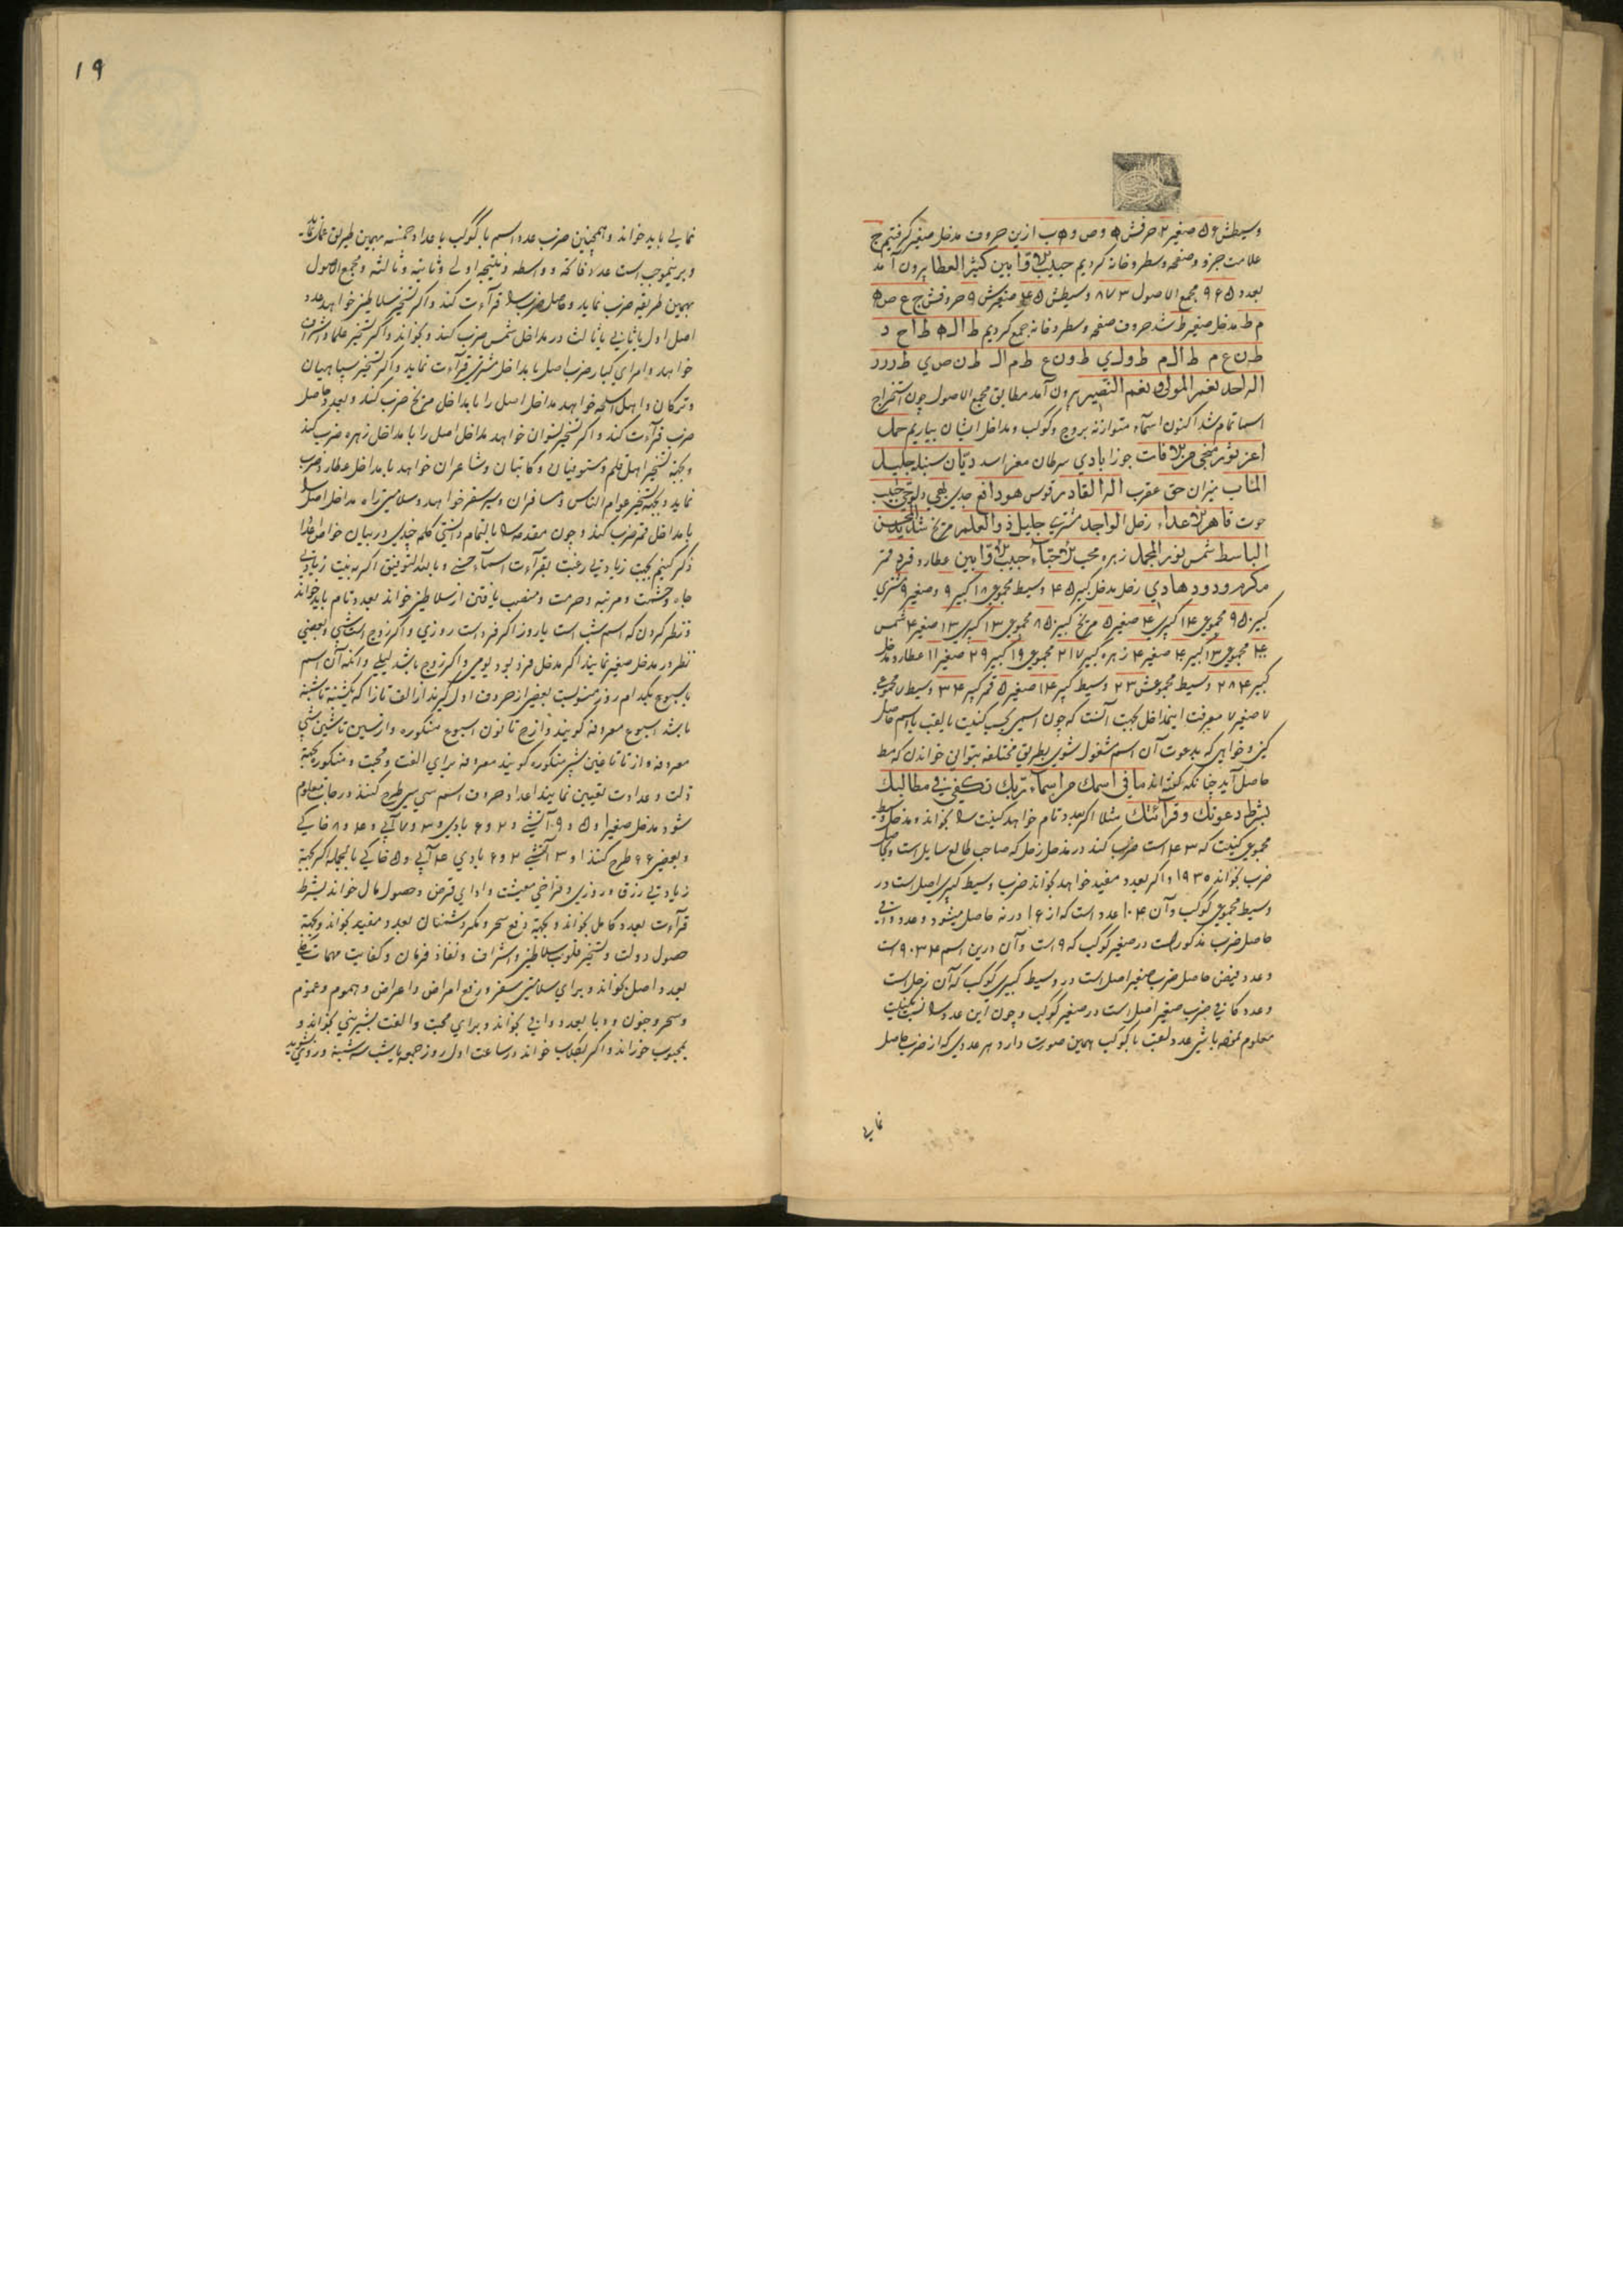 وسیطش ۵۶ صغیر ۲ حرفش ه و ص و ه ب ازین حروف مدخل صغیر کرفتیم ج
علامت جزو و صفحه و سطر و خانه کردیم حبیب الاوابین کثیر العطا بیرون آمد
بعدد ۹۶۵ مجمع الاصول ۸۷۳ وسیطش ۴۵ صغیرش ۹ حروفش ج ع ص ه
م ط مدخل صغیر ط شد حروف صفحه و سطر و خانه جمع کردیم ط ال ه ط ا ح د
ط ن ع م ط ال م ط و ل ي ط و ن ع ط م ال ط ن ص ي ط ر و ر د
اله احد نعم المولی و نعم النصیر بیرون آمد مطابق مجمع الاصول چون استخراج
اسما تمام شد اکنون اسماء متوازنه بروج و کوکب و مداخل ایشان بیاریم حمل
اعز ثور منجی من الافات جوزا بادي سرطان معز اسد دیّان سنبله جلیل
المناب میزان حق عقرب اله القادر قوس هو دافع جدي دلو حبیب
حوت قاهر الاعداء زحل الواجد مشتري جلیل ذو العلم مریخ شدید
الباسط شمس نور المجمل زهره محب الاحباء حبیب الاوابین عطارد فرد قمر
مکرم ودود هادي زحل مدخل کبیر ۴۵ وسیط مجموعی ۱۸ کبیر ۹ و صغیر ۹ مشتري
کبیر ۹۵۰ مجموعی ۱۴ کبیري ۴ صغیر ۵ مریخ کبیر ۸۵۰ مجموعی ۱۳ کبیري ۱۳ صغیر ۴ شمس
مجموعی ۱۳ کبیر ۴ صغیر ۴ زهره کبیر ۲۱۷ مجموعی ۱۹ کبیر ۲۹ صغیر ۱۱ عطارد مدخل
کبیر ۲۸۴ وسیط مجموعش ۲۳ وسیط کبیر ۱۴ صغیر ۵ قمر کبیر ۳۴ وسیط ۷ مجموعي
۷ صغیر ۷ معرفت این مداخل بجهت آنست که چون اسمی بجهت کنیت یا لقب یا اسم حاصل
کني و خواهي که بدعوت آن اسم مشغول شوي بطریق مختلفه بتواني خواندن که مط
حاصل آید چنانکه گفته‌اند ما في اسمك من اسماء ربك تکفیني في مطالبك
بشرط دعوتك و قرائتك مثلا اکر بعدد تام خواهد کنیت را بخواند و مدخل وسیط
مجموعی کنیت که ۴۳ است ضرب کند در مدخل زحل که صاحب طالع سایل است و حاصل
ضرب بخواند ۱۹۳۵ و اکر بعدد مفید خواهد بخواند ضرب وسیط کبیري اصل است در
وسیط مجموعی کوکب و آن ۱۰۴ عدد است که از ۱۶ در نه حاصل میشود و عدد وافي
حاصل ضرب مذکور است در صغیر کوکب که ۹ است و آن درین اسم ۹۰۳۴ است
و عدد فیض حاصل ضرب صغیر اصل است در وسیط کبیري کوکب که آن زحل است
و عدد کافي ضرب صغیر اصل است در صغیر کوکب و چون این عدد را نسبت بکنیت
معلوم نموده باشي عدد لقب با کوکب بهمین صورت دارد هر عددي که از ضرب حاصل
نمایي
۱۹
نمایی باید خواند و همچنین ضرب عدد اسم با کوکب با عداد خمسه بهمین طریق عمل نماید
و برینموجب است عدد فاتحه و واسطه و نتیجه اولي و ثانیه و ثالثه و مجمع الاصول
بهمین طریقه ضرب نماید و حاصل ضرب را قرآءت کند و اکر تسخیر سلاطین خواهد عدد
اصل اول یا ثاني یا ثالث در مداخل شمس ضرب کند و بخواند و اکر تسخیر علما و اشراف
خواهد و امراي کبار ضرب اصل با مداخل مشتري قرآءت نماید و اکر تسخیر سپاهیان
و ترکان و اهل اسلحه خواهد مداخل اصل را با مداخل مریخ ضرب کند و بعدد حاصل
ضرب قرآءت کند و اکر تسخیر نسوان خواهد مداخل اصل را با مداخل زهره ضرب کند
و بجهة تسخیر اهل قلم و مستوفیان و کاتبان و شاعران خواهد با مداخل عطارد ضرب
نماید و بجهة تسخیر عوام الناس و مسافران و سیر سفر خواهد و سلامتي راه مداخل اصل را
با مداخل قمر ضرب کند و چون مقدمه را بالتمام دانستي کلمه چندي در بیان خواص اعداد
ذکر کنیم بجهت زیادتي رغبت بقرآءت اسماء حسني و بالله التوفیق اکر به نیت زیادتي
جاه و حشمت و مرتبه و حرمت و منصب یافتن از سلاطین خواند بعدد تام باید خواند
و نظر کردن که اسم شب است یا روز اکر فرد است روزي و اکر زوج است شبي و بعضي
نظر در مدخل صغیر نمایند اکر مدخل فرد بود یومي و اکر زوج باشد لیلي و آنکه آن اسم
باسبوع بکدام روز منسوبست بعضي از حروف اول کیرند از الف تا زا که یکشنبه تا شنبه
باشد اسبوع معروفه کویند و از ح تا نون اسبوع منکوره و از سین تا شین شبي
معروفه و از تا تا غین شبي منکوره کویند معروفه براي الفت و محبت و منکوره بجهة
ذلت و عداوت تعیین نمایند اعداد حروف اسم سي سي طرح کنند درجات معلوم
شود مدخل صغیر ۱ و ۵ و ۹ آتشي و ۲ و ۶ بادي و ۳ و ۷ آبي و ۴ و ۸ خاکي
و بعضي ۶۶ طرح کنند ۱ و ۳ آتشي ۲ و ۶ بادي ۴ آبي و ۵ خاکي بالجمله اکر بجهة
زیادتي رزق و روزي و فراخي معیشت و اداي قرض و حصول مال خواند بشرط
قرآءت بعدد کامل بخواند و بجهة دفع سحر و مکر دشمنان بعدد مفید بخواند و بجهة
حصول دولت و تسخیر قلوب سلاطین و اشراف و نفاذ فرمان و کفایت مهمات
بعدد اصل بخواند و براي سلامتي سفر و رفع امراض و اعراض و هموم و غموم
و سحر و جنون و وبا بعدد وافي بخواند و براي محبت و الفت بشیریني بخواند و
بمحبوب خوراند و اکر بکلاب خواند در ساعت اول روز جمعه یا شب سه شنبه و در روي